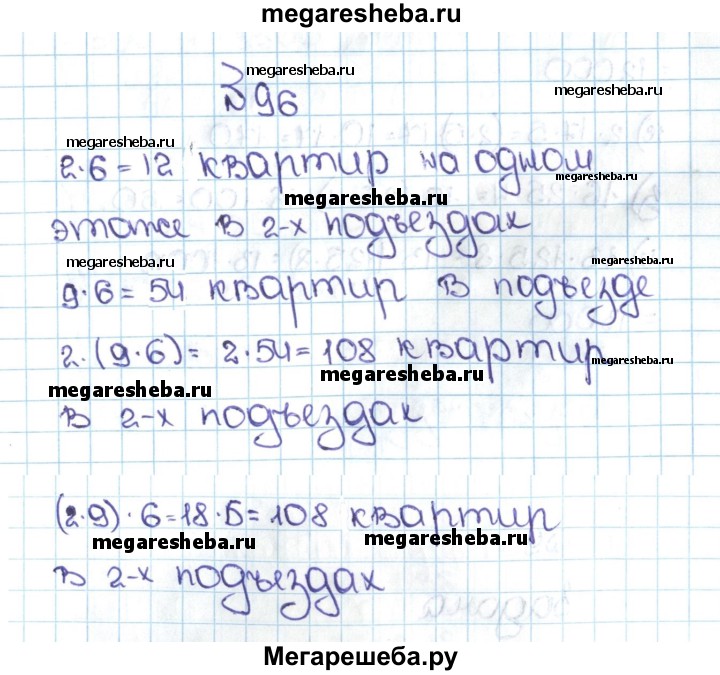 megaresheba.ru
megaresheba.ru
№96
megaresheba.ru
megaresheba.ru
2·6=12 квартир на одном
megaresheba.ru
megaresheba.ru
этаже в 2-х подъездах
megaresheba.ru
megaresheba.ru
9·6=54 квартир в подъезде
2·(9·6)=2·54=108 квартир
megaresheba.ru
megaresheba.ru
megaresheba.ru
в 2-х подъездах
(2·9)·6=18·6=108 квартир
megaresheba.ru
megaresheba.ru
в 2-х подъездах
Мегарешеба.ру